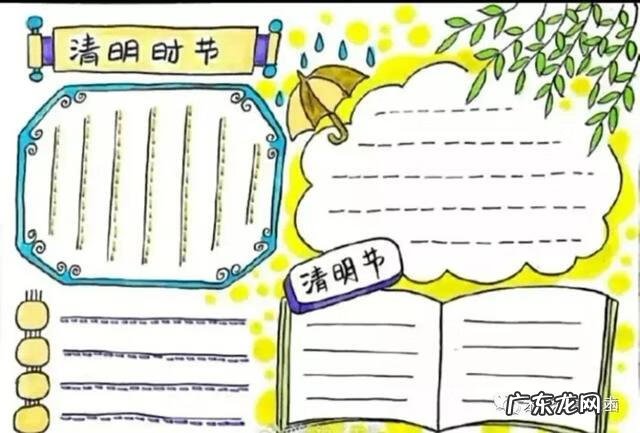 清明时节
清明节
广东龙网